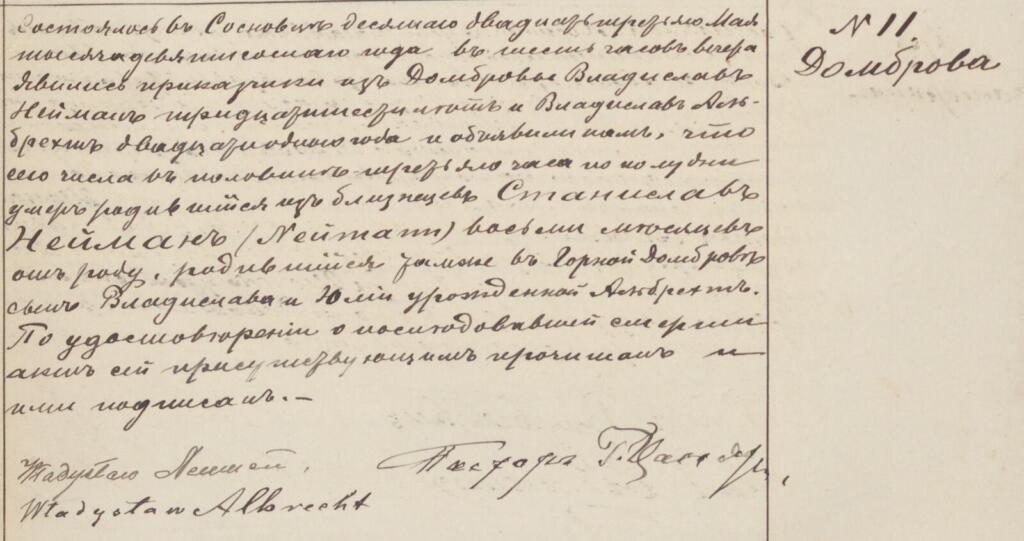 Состоялось въ Сосновицѣ десятаго двадцать третьяго Мая
тысяча девятисотаго года въ шесть часовъ вечера
Явились приказчики изъ Домбровы Владиславъ
Нейманъ тридцати шести лѣтъ и Владиславъ Аль-
брехтъ двадцати одного года и объявили намъ, что
сего числа въ половинѣ третьяго часа по полудни
умеръ родившійся изъ близнецевъ Станиславъ
Нейманъ (Neimann) восьми мѣсяцевъ
отъ роду, родившійся тамже въ Горной Домбровѣ
сынъ Владислава и Юліи урожденной Альбрехтъ.
По удостовѣреніи о послѣдовавшей смерти
актъ сей присутствующимъ прочитанъ и
ими подписанъ. —
Władysław Neuman,
Władysław Albrecht
Пасторъ Г.
N 11.
Домброва